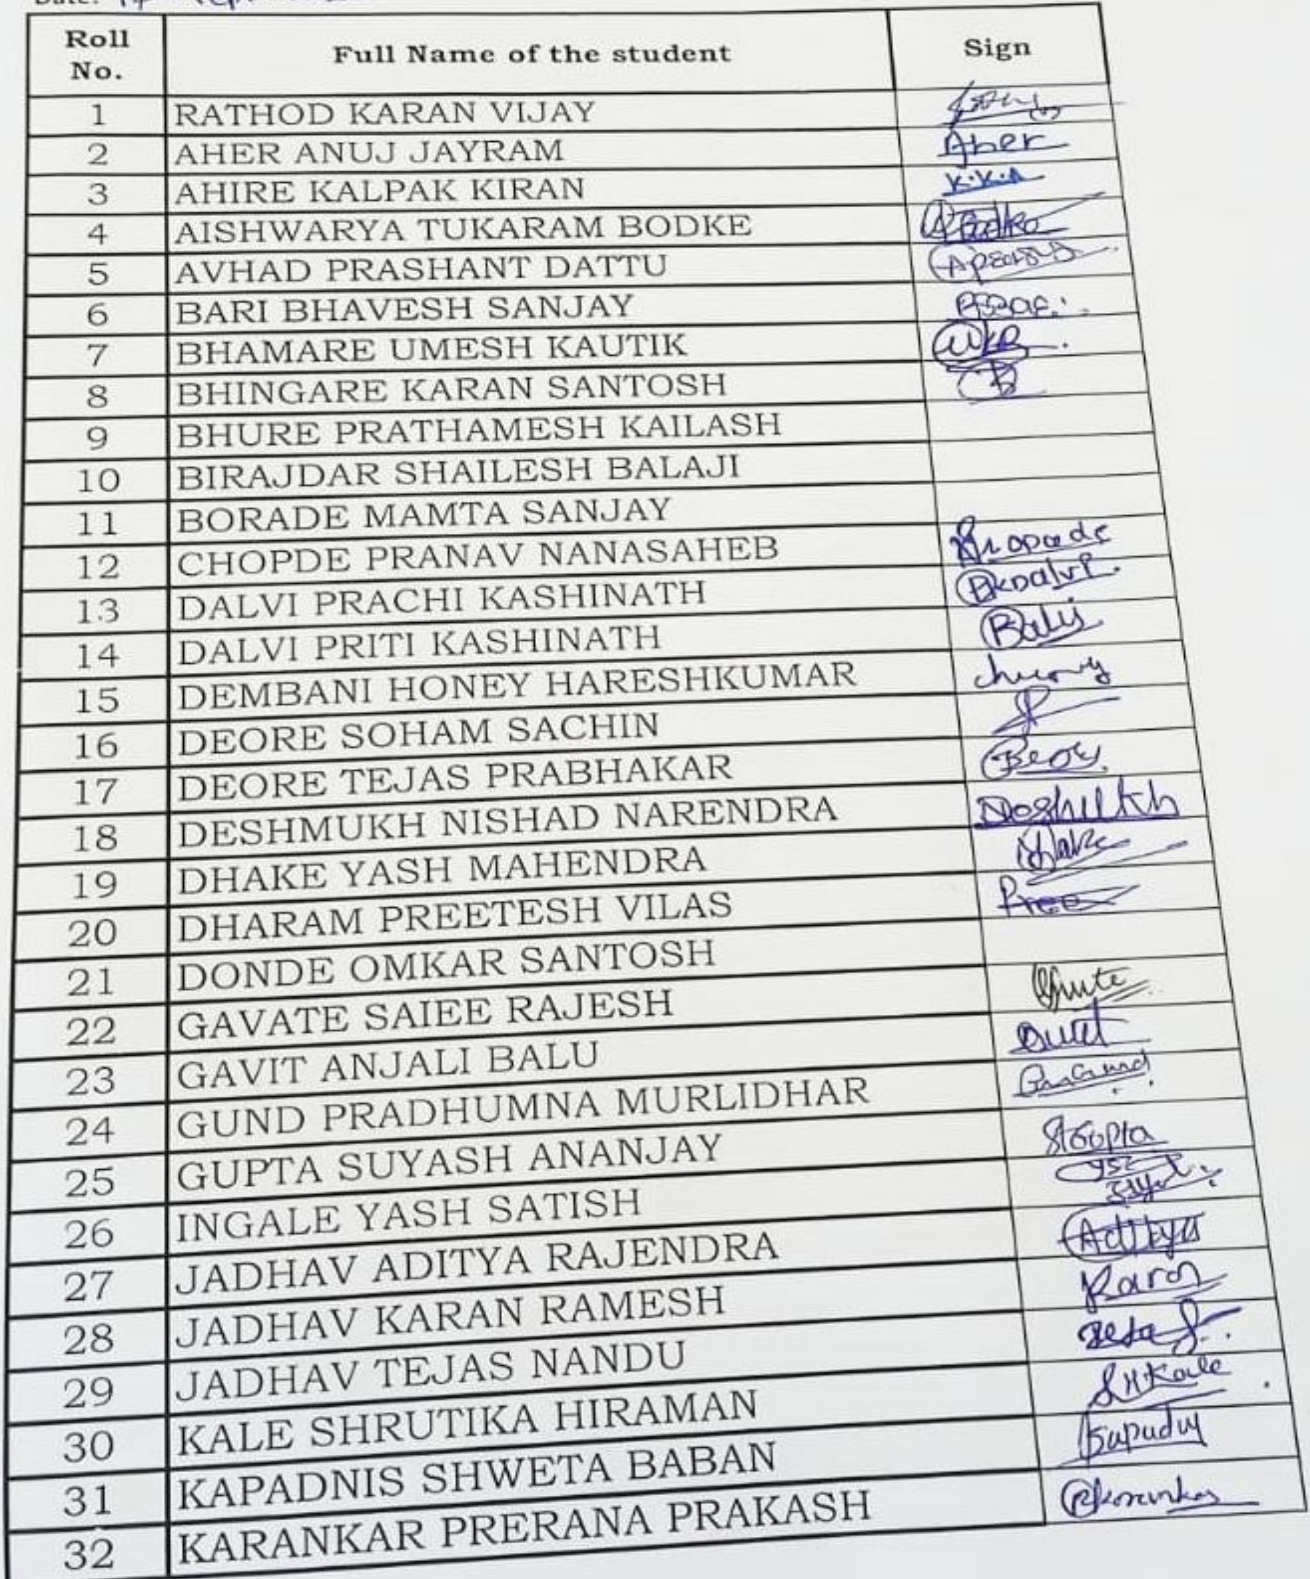 Date:
Roll No. Full Name of the student Sign
1 RATHOD KARAN VIJAY
2 AHER ANUJ JAYRAM Aher
3 AHIRE KALPAK KIRAN K.K.A
4 AISHWARYA TUKARAM BODKE Bodke
5 AVHAD PRASHANT DATTU
6 BARI BHAVESH SANJAY
7 BHAMARE UMESH KAUTIK UKB
8 BHINGARE KARAN SANTOSH B
9 BHURE PRATHAMESH KAILASH
10 BIRAJDAR SHAILESH BALAJI
11 BORADE MAMTA SANJAY
12 CHOPDE PRANAV NANASAHEB
13 DALVI PRACHI KASHINATH PKDalvi.
14 DALVI PRITI KASHINATH
15 DEMBANI HONEY HARESHKUMAR
16 DEORE SOHAM SACHIN
17 DEORE TEJAS PRABHAKAR
18 DESHMUKH NISHAD NARENDRA
19 DHAKE YASH MAHENDRA Dhake
20 DHARAM PREETESH VILAS Pree
21 DONDE OMKAR SANTOSH
22 GAVATE SAIEE RAJESH
23 GAVIT ANJALI BALU
24 GUND PRADHUMNA MURLIDHAR
25 GUPTA SUYASH ANANJAY SAGupta
26 INGALE YASH SATISH
27 JADHAV ADITYA RAJENDRA Aditya
28 JADHAV KARAN RAMESH Karan
29 JADHAV TEJAS NANDU
30 KALE SHRUTIKA HIRAMAN SHKale
31 KAPADNIS SHWETA BABAN
32 KARANKAR PRERANA PRAKASH